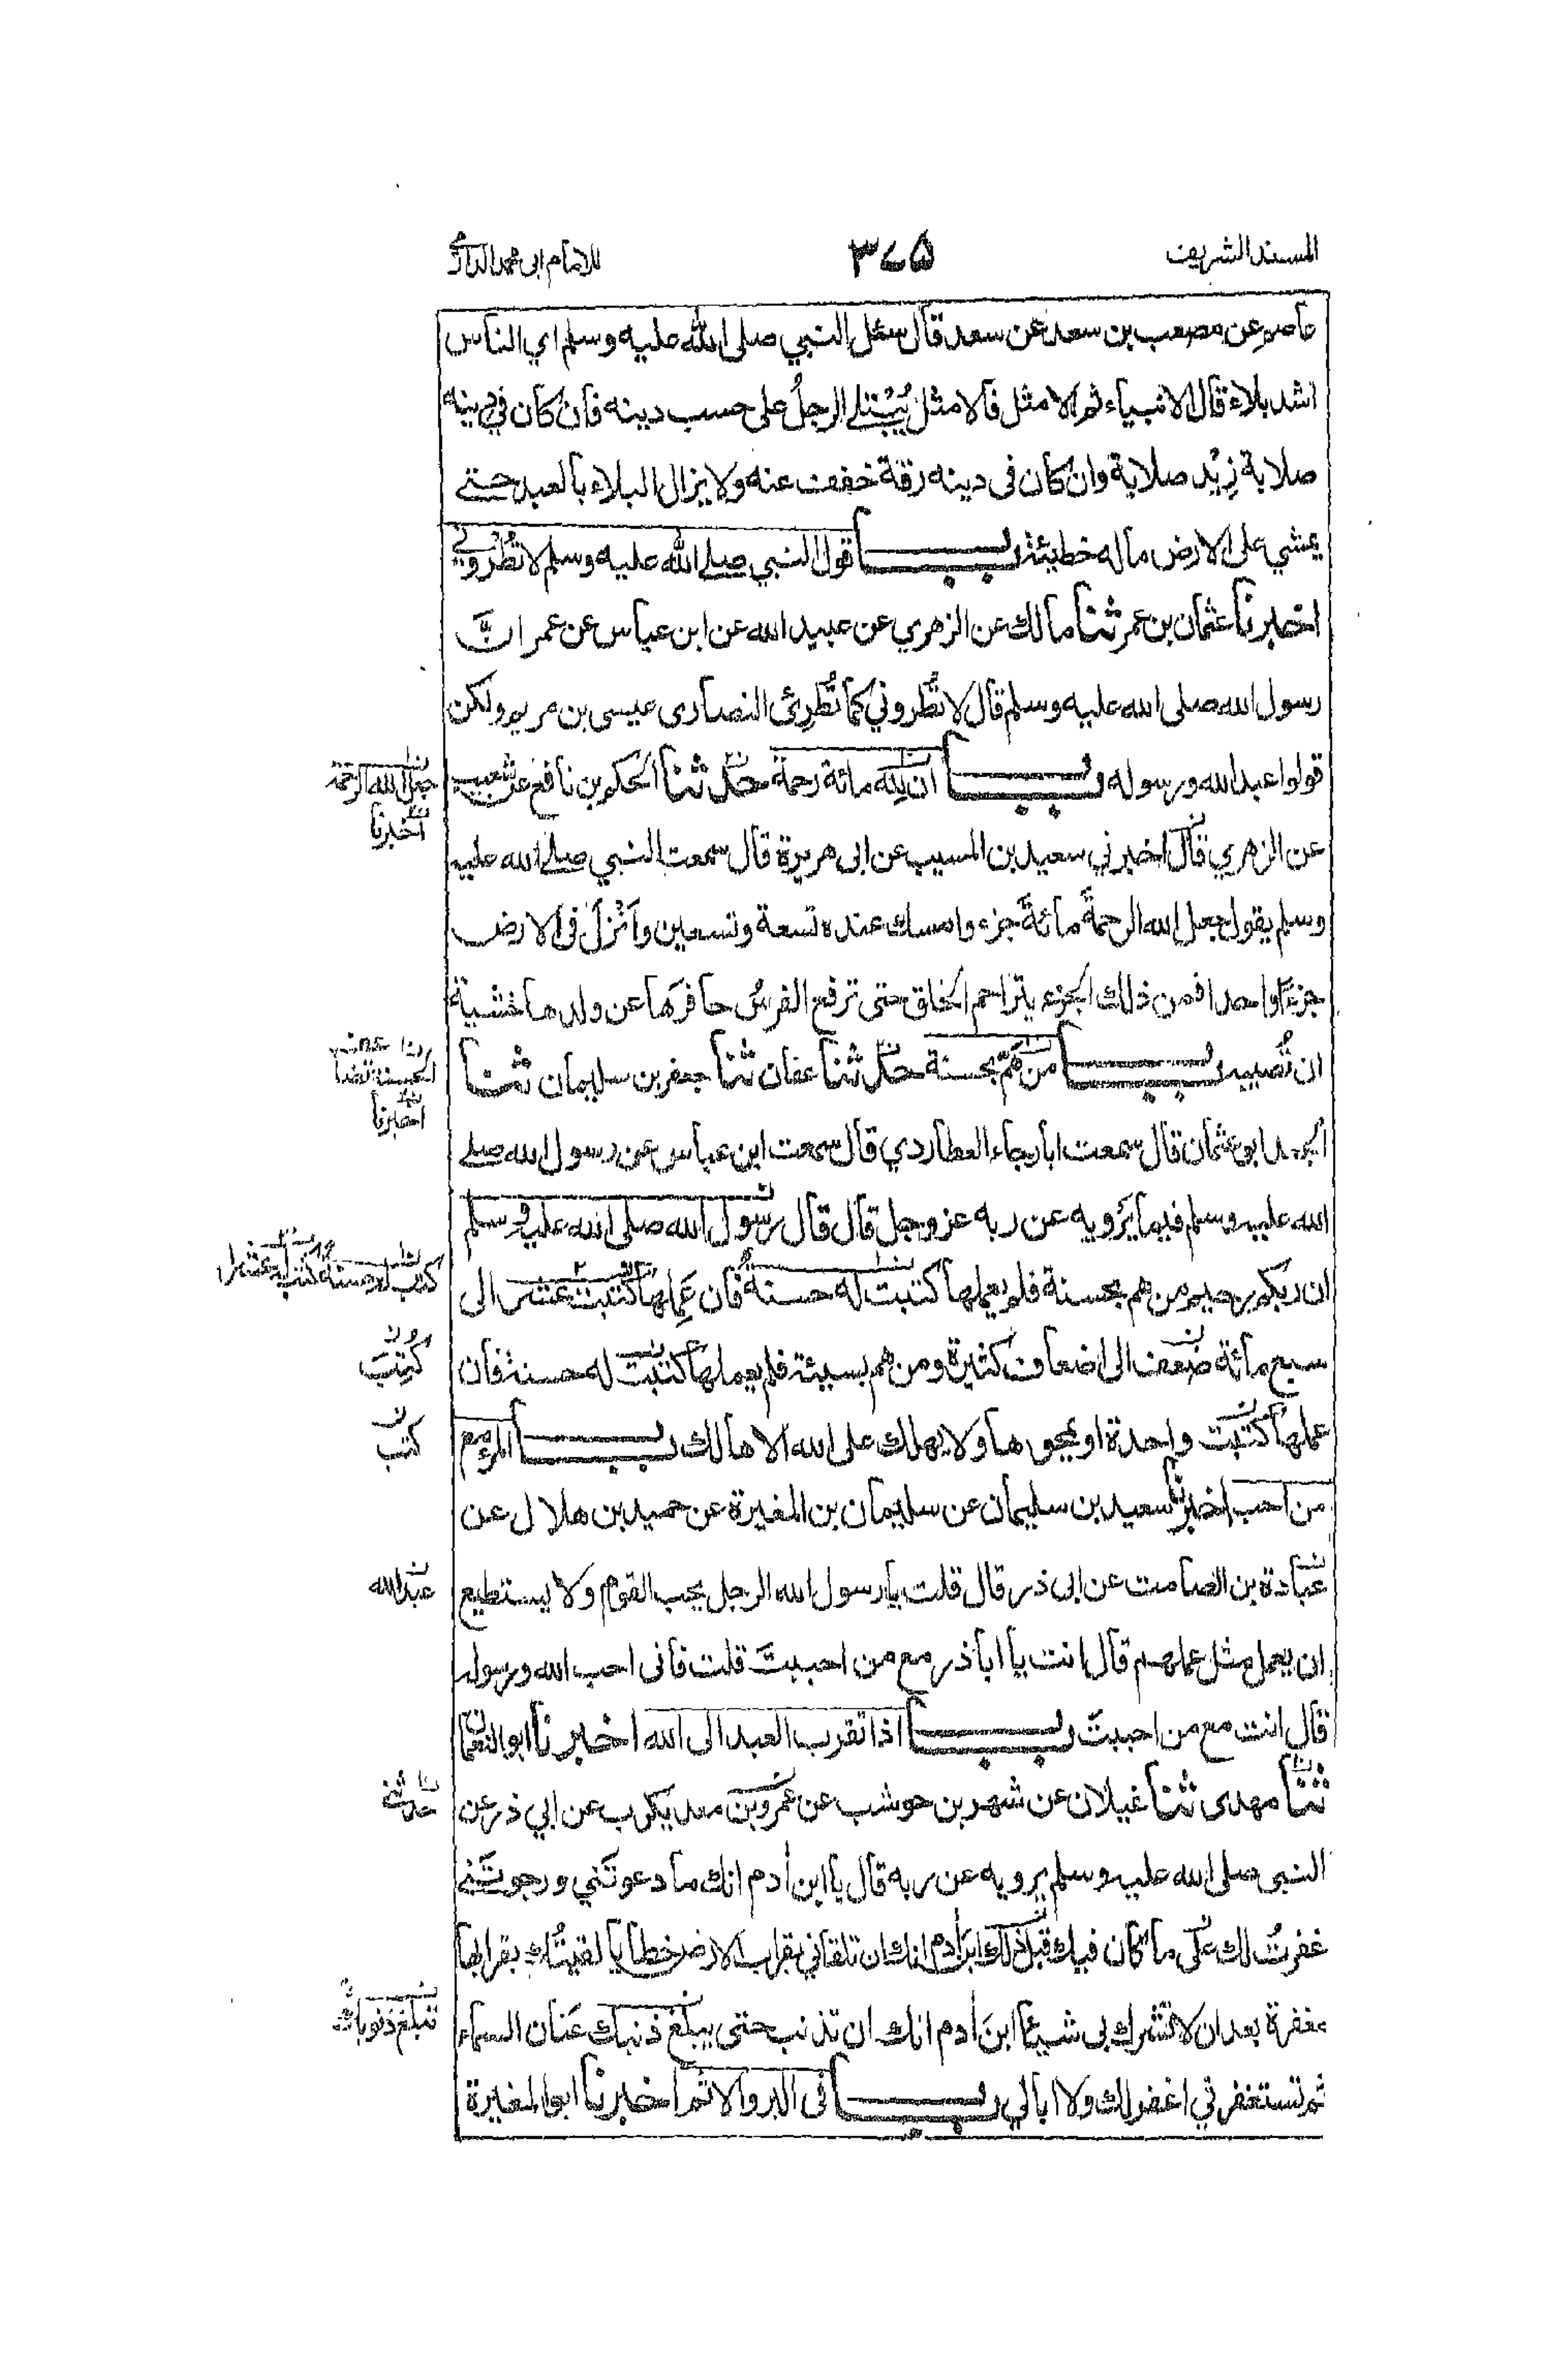 المسند الشريف ٣٧٥ للامام ابی محمد الدارمی
عاصم عن مصعب بن سعد عن سعد قال سئل النبي صلی الله عليه وسلم اي الناس
اشد بلاء قال الانبياء ثم الامثل فالامثل يُبْتَلے الرجلُ علی حسب دينه فان كان فی دينه
صلابة زِيْد صلابة وان كان فی دينه رقة خففت عنه ولا يزال البلاء بالعبد حتے
يمشي علی الارض ماله خطيئة باب قول النبي صلے الله عليه وسلم لا تُطْرُوْنے
اخبرنا عثمان بن عمر ثنا مالك عن الزهري عن عبيد الله عن ابن عباس عن عمر انَّ
رسول الله صلی الله عليه وسلم قال لا تُطروني كما تُطْرِئُ النصاری عيسی بن مريم ولكن
قولوا عبد الله ورسوله باب ان لله مائة رحمة حدثنا الحكم بن نافع عن شعيب
جعل الله الرحمة
اخبرنا
عن الزهري قال اخبرني سعيد بن المسيب عن ابی هريرة قال سمعت النبي صلے الله عليه
وسلم يقول جعل الله الرحمةَ مائةَ جزء وامسك عنده تسعة وتسعين وَاَنْزَلَ فی الارض
جزءًا واحدا فمن ذلك الجزء يتراحم الخلق حتی ترفع الفرسُ حافرَها عن ولدها خشية
ان تُصيبه باب من هَمَّ بحسنة حدثنا عفان ثنا جعفر بن سليمان ثنا
اخبرنا
الجعد ابو عثمان قال سمعت ابا رجاء العطاردي قال سمعت ابن عباس عن رسول الله صلے
الله عليه وسلم فيما يَرْويه عن ربه عز وجل قال قال رسول الله صلی الله عليه وسلم
ان ربكم رحيم من هم بحسنة فلم يعملها كتبت له حسنةٌ فان عَمِلها كتبت عشر الی
سبع مائة ضعف الی اضعاف كثيرة ومن هم بسيئة فلم يعملها كتبت له حسنة فان
كُتِبَت
عملها كتبت واحدة او يمحوها ولا يهلك علی الله الا هالك باب المرء مع
كتب
من احب اخبرنا سعيد بن سليمان عن سليمان بن المغيرة عن حميد بن هلال عن
عبادة بن الصامت عن ابی ذر قال قلت يا رسول الله الرجل يحب القوم ولا يستطيع
عبد الله
ان يعمل مثل عملهم قال انت يا ابا ذر مع من احببتَ قلت فانی احب الله ورسوله
قال انت مع من احببتَ باب اذا تقرب العبد الی الله اخبرنا ابو النعمان
ثنا مهدی ثنا غيلان عن شهر بن حوشب عن عمرو بن معد يكرب عن ابي ذر عن
حدثنے
النبی صلی الله عليه وسلم يرويه عن ربه قال يا ابن اٰدم انك ما دعوتَني ورجوتَنے
غفرتُ لك علی ما كان فيك قبل ذلك ابن اٰدم انك ان تلقاني بقراب الارض خطايا لقيتُك بقرابها
مغفرة بعد ان لا تشرك بی شيئا ابنَ اٰدم انك ان تذنب حتی يبلغ ذنبك عَنَان السماء
تبلغ ذنوبك
ثم تستغفرني اغفر لك ولا ابالي باب فی البر والاثم اخبرنا ابو المغيرة